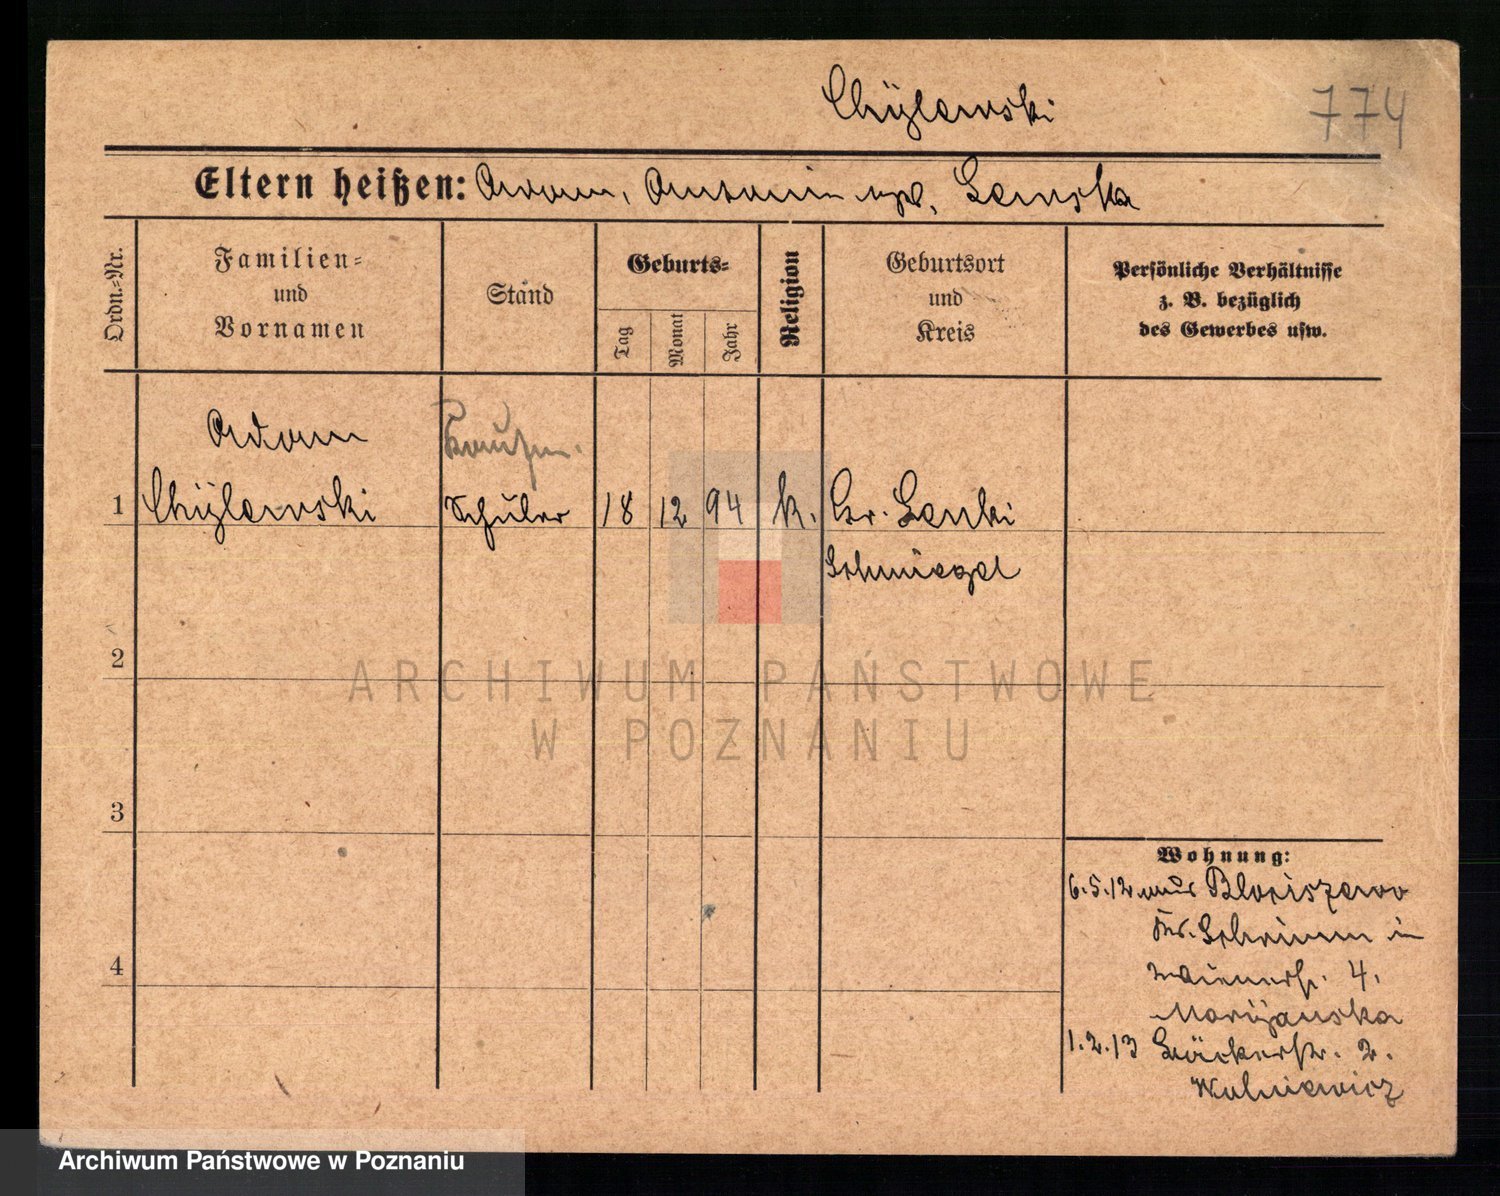 Chÿlewski
774
Eltern heißen: Adam, Antonie geb. Lenska
Ordn.-Nr.
Familien-
und
Vornamen
Stand
Geburts-
Tag
Monat
Jahr
Religion
Geburtsort
und
Kreis
Persönliche Verhältnisse
z. B. bezüglich
des Gewerbes usw.
Adam
Kaufm.
1 Chÿlewski Schüler 18 12 94 k. Gr. Lenki
Schmiegel
2
ARCHIWUM PAŃSTWOWE
W POZNANIU
3
Wohnung:
6.5.12 aus Blociszewo
Kr. Schrimm in
4. 
4
Marÿanska
1.2.13 Bäckerstr. 2.
Wolniewicz
Archiwum Państwowe w Poznaniu